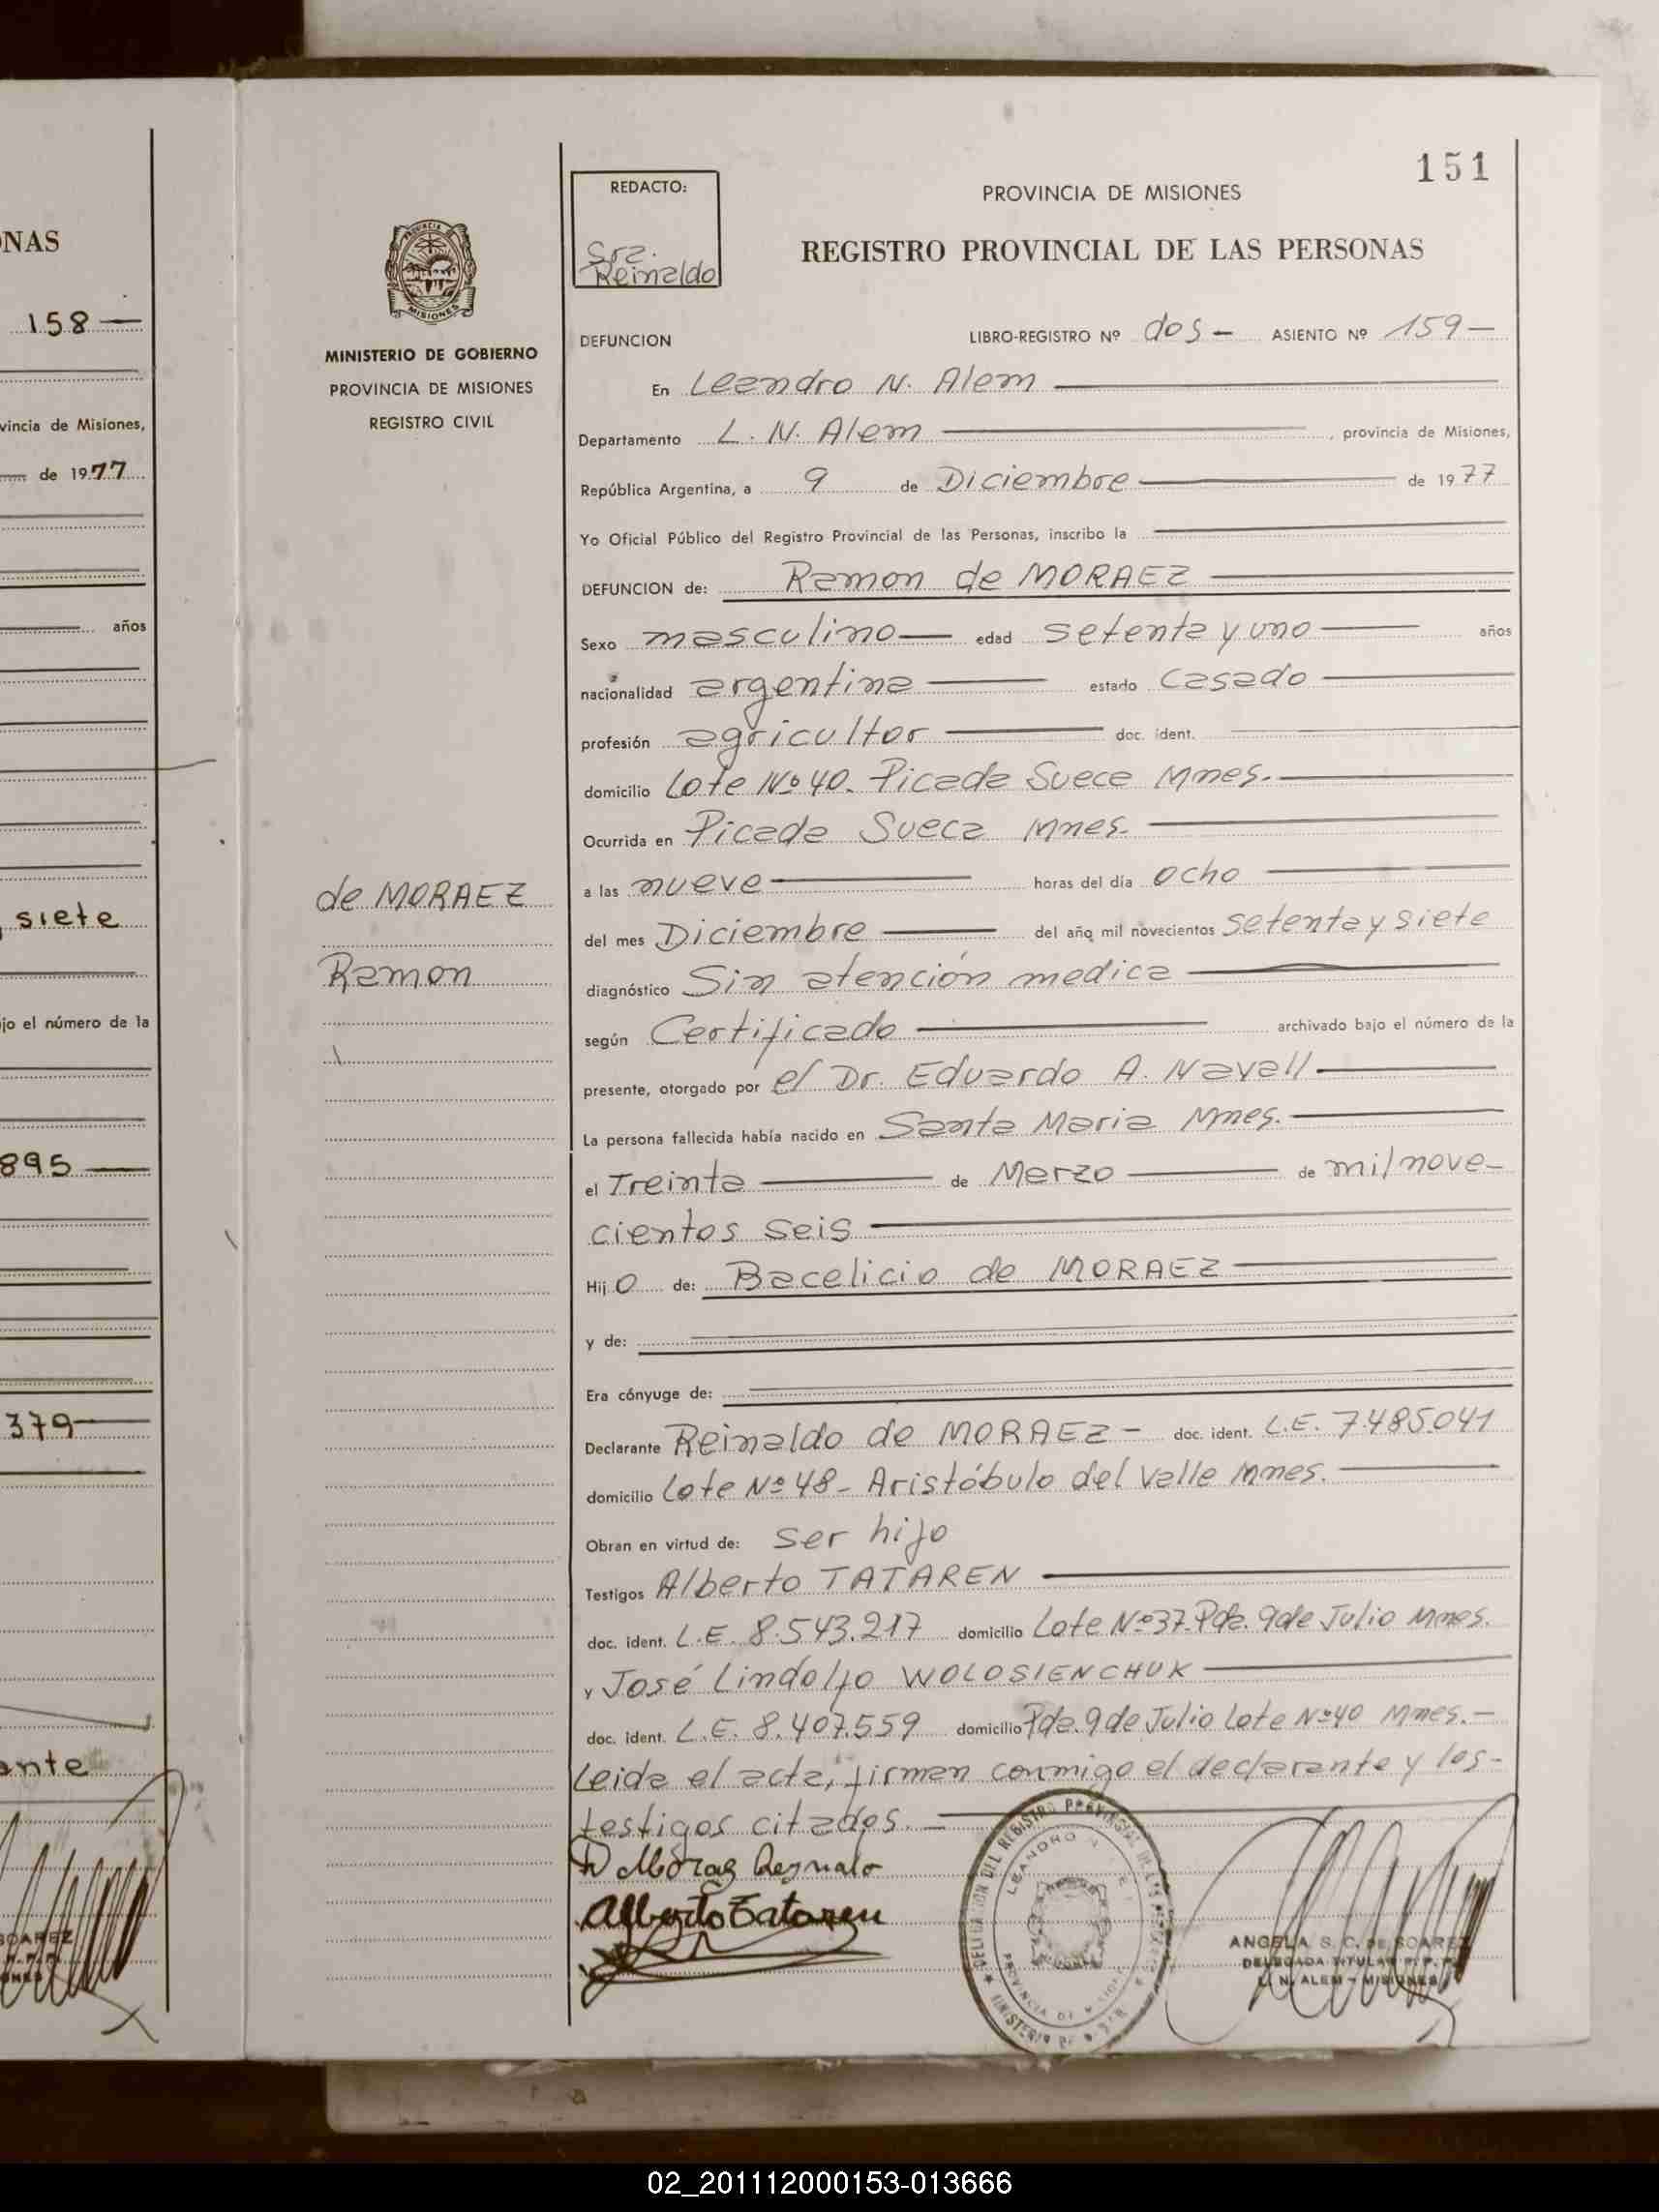 ONAS
158
vincia de Misiones,
de 1977
años
siete
jo el número de la
895
379
ante
151
REDACTO:
Sra.
Reinaldo
PROVINCIA DE MISIONES
REGISTRO PROVINCIAL DE LAS PERSONAS
PROVINCIA DE
MISIONES
MINISTERIO DE GOBIERNO
PROVINCIA DE MISIONES
REGISTRO CIVIL
de MORAEZ
Ramon
DEFUNCION LIBRO-REGISTRO Nº dos - ASIENTO Nº 159-
En Leandro N. Alem
Departamento L. N. Alem, provincia de Misiones,
República Argentina, a 9 de Diciembre de 1977
Yo Oficial Público del Registro Provincial de las Personas, inscribo la
DEFUNCION de: Ramon de MORAEZ
Sexo masculino edad setenta y uno años
nacionalidad argentina estado casado
profesión agricultor doc. ident.
domicilio Lote Nº 40. Picada Sueca Mnes.
Ocurrida en Picada Sueca Mnes.
a las nueve horas del día ocho
del mes Diciembre del año mil novecientos setenta y siete
diagnóstico Sin atención medica
según Certificado archivado bajo el número de la
presente, otorgado por el Dr. Eduardo A. Navall
La persona fallecida había nacido en Santa Maria Mnes.
el Treinta de Marzo de mil nove-
cientos seis
Hijo de: Bacelicio de MORAEZ
y de:
Era cónyuge de:
Declarante Reinaldo de MORAEZ - doc. ident. L.E. 7.485.041
domicilio Lote Nº 48 - Aristóbulo del Valle Mnes.
Obran en virtud de: ser hijo
Testigos Alberto TATAREN
doc. ident. L.E. 8.543.217 domicilio Lote Nº 37. Pda. 9 de Julio Mnes.
y José Lindolfo WOLOSIENCHUK
doc. ident. L.E. 8.407.559 domicilio Pda. 9 de Julio Lote Nº 40 Mnes.-
Leida el acta, firman conmigo el declarante y los-
testigos citados.-
Alberto Tataren
DELEGACION DEL REGISTRO PROVINCIAL DE LAS PERSONAS
LEANDRO N.
PROVINCIA DE MISIONES
ANGELA S. C. DE SOAREZ
DELEGADA TITULAR R. P. P.
L. N. ALEM - MISIONES
02_201112000153-013666